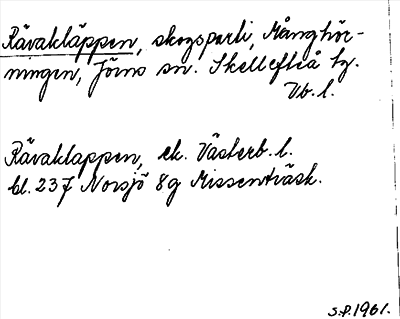 Rävakläppen, skogsparti, Månghör-
ningen, Jörns sn. Skellefteå tg.
Vb. l.
Rävakläppen, ek. Västerb. l.
bl. 237 Norsjö 8g Missenträsk.
S.P. 1961.